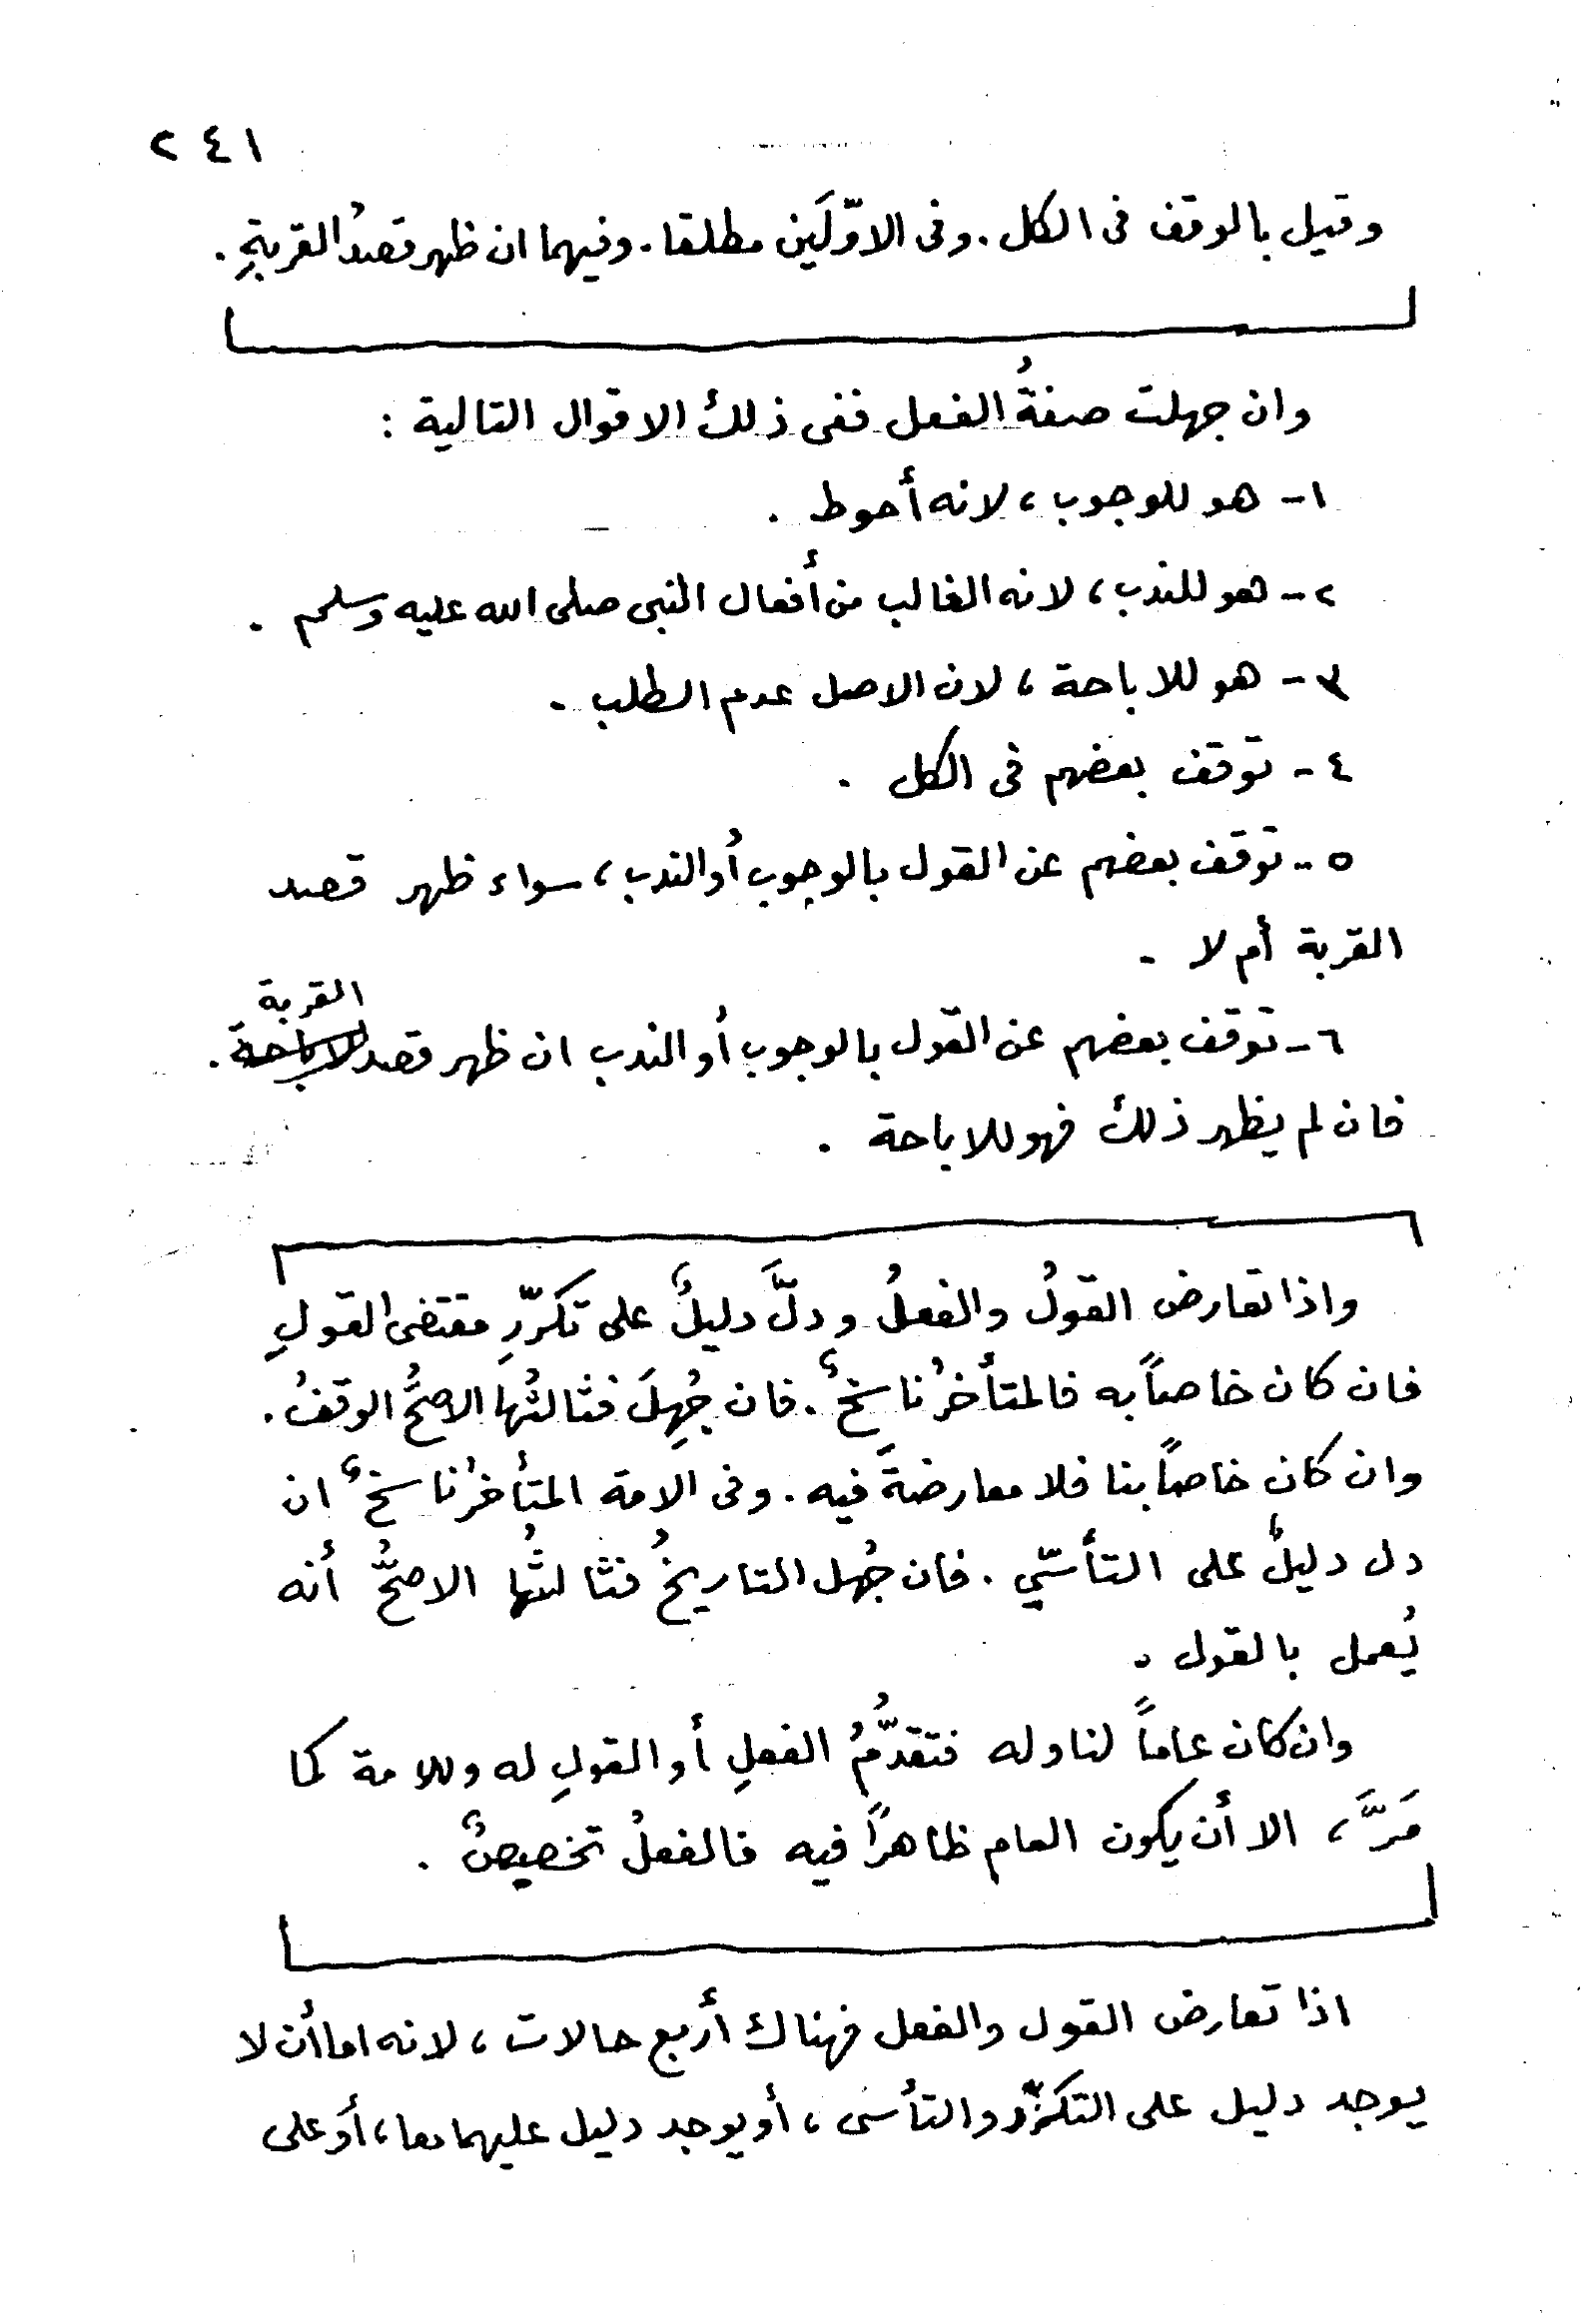 ٢٤١
وقيل بالوقف فى الكل . وفى الاوّلَين مطلقا . وفيهما ان ظهر قصدُ القربةِ .
وان جهلت صفةُ الفعل ففى ذلك الاقوال التالية :
١ - هو للوجوب ، لانه أحوط .
٢ - هو للندب ، لانه الغالب من أفعال النبى صلى الله عليه وسلم .
٣ - هو للاباحة ، لان الاصل عدم الطلب .
٤ - توقف بعضهم فى الكل .
٥ - توقف بعضهم عن القول بالوجوب أو الندب ، سواء ظهر قصد
القربة أم لا .
القربة
٦ - توقف بعضهم عن القول بالوجوب أو الندب ان ظهر قصد الاباحة .
فان لم يظهر ذلك فهو للاباحة .
واذا تعارض القولُ والفعلُ ودلَّ دليلٌ على تكرّرِ مقتضى القولِ
فان كان خاصاً به فالمتأخرُ ناسخٌ . فان جُهِلَ فثالثُها الاصحُّ الوقفُ .
وان كان خاصاً بنا فلا معارضةَ فيه . وفى الامة المتأخرُ ناسخٌ ان
دل دليلٌ على التأسّي . فان جُهل التاريخُ فثالثُها الاصحُّ أنه
يُعمل بالقول .
وان كان عاماً لنا وله فتقدُّمُ الفعلِ أو القولِ له وللامة كما
مَرَّ ، الا أن يكون العام ظاهراً فيه فالفعلُ تخصيصٌ .
اذا تعارض القول والفعل فهناك أربع حالات ، لانه اما أن لا
يوجد دليل على التكرّر والتأسى ، أو يوجد دليل عليهما معا ، أو على